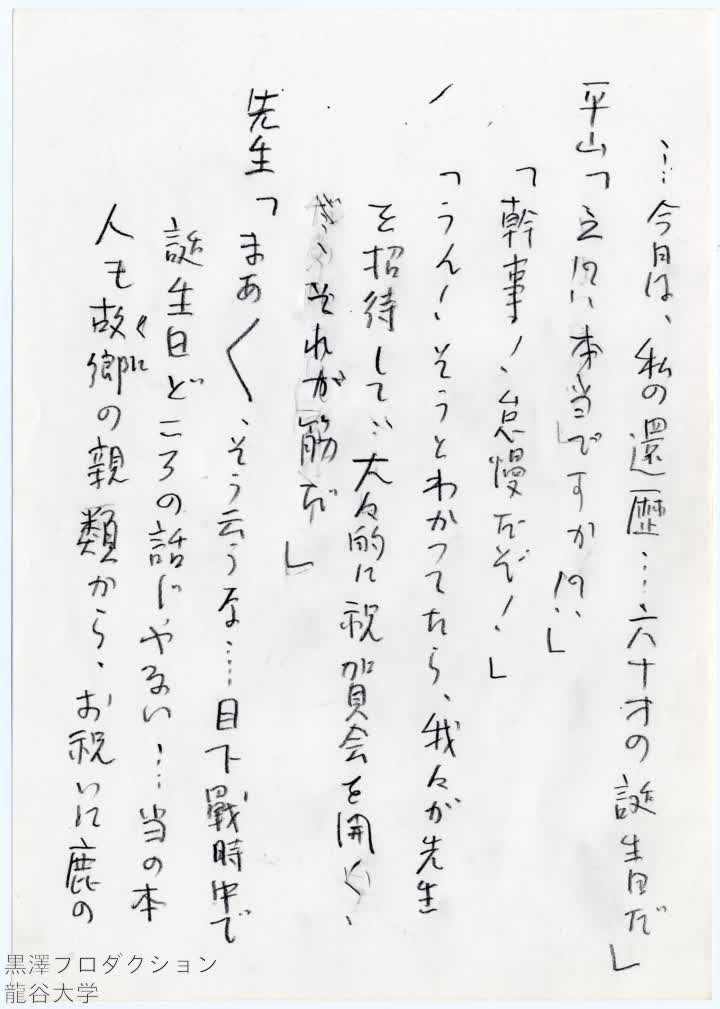 …今日は、私の還暦…六十才の誕生日だ」
平山「えッ!? 本当ですか!?」
「幹事!、怠慢だぞ!」
「うん!、そうとわかってたら、我々が先生
を招待して…大々的に祝賀会を開く、
それが筋だ」
先生「まあ〱、そう云うな……目下戰時中で
誕生日どころの話じゃない…当の本
人も故郷の親類から、お祝いに鹿の
黒澤プロダクション
龍谷大学